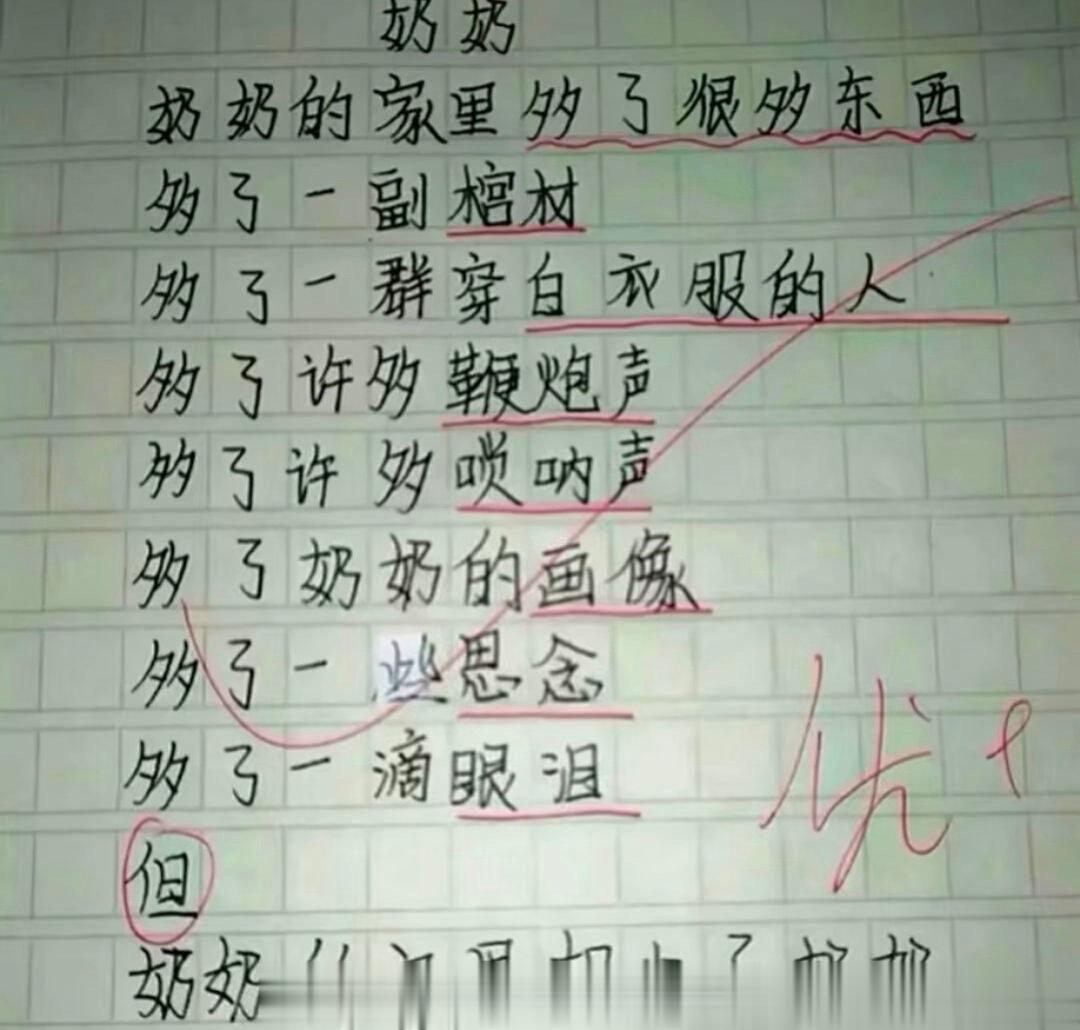 奶奶
奶奶的家里多了很多东西
多了一副棺材
多了一群穿白衣服的人
多了许多鞭炮声
多了许多唢呐声
多了奶奶的画像
多了一些思念
多了一滴眼泪
优
但
奶奶